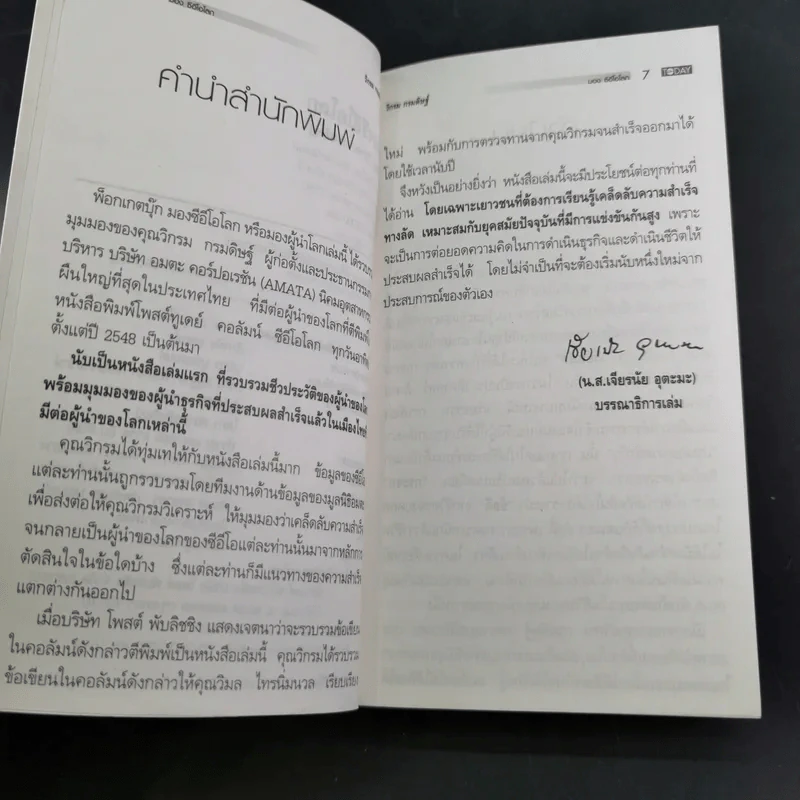 มอง ซีอีโอโลก
คำนำสำนักพิมพ์
พ็อกเกตบุ๊ก มองซีอีโอโลก หรือมองผู้นำโลกเล่มนี้ ได้รวบรวม
มุมมองของคุณวิกรม กรมดิษฐ์ ผู้ก่อตั้งและประธานกรรมการ
บริหาร บริษัท อมตะ คอร์ปอเรชัน (AMATA) นิคมอุตสาหกรรม
ผืนใหญ่ที่สุดในประเทศไทย ที่มีต่อผู้นำของโลกที่ตีพิมพ์ใน
หนังสือพิมพ์โพสต์ทูเดย์ คอลัมน์ ซีอีโอโลก ทุกวันอาทิตย์
ตั้งแต่ปี 2548 เป็นต้นมา
นับเป็นหนังสือเล่มแรก ที่รวบรวมชีวประวัติของผู้นำของโลก
พร้อมมุมมองของผู้นำธุรกิจที่ประสบผลสำเร็จแล้วในเมืองไทย
มีต่อผู้นำของโลกเหล่านี้
คุณวิกรมได้ทุ่มเทให้กับหนังสือเล่มนี้มาก ข้อมูลของซีอีโอ
แต่ละท่านนั้นถูกรวบรวมโดยทีมงานด้านข้อมูลของมูลนิธิอมตะ
เพื่อส่งต่อให้คุณวิกรมวิเคราะห์ ให้มุมมองว่าเคล็ดลับความสำเร็จ
จนกลายเป็นผู้นำของโลกของซีอีโอแต่ละท่านนั้นมาจากหลักการ
ตัดสินใจในข้อใดบ้าง ซึ่งแต่ละท่านก็มีแนวทางของความสำเร็จ
แตกต่างกันออกไป
เมื่อบริษัท โพสต์ พับลิชชิง แสดงเจตนาว่าจะรวบรวมข้อเขียน
ในคอลัมน์ดังกล่าวตีพิมพ์เป็นหนังสือเล่มนี้ คุณวิกรมได้รวบรวม
ข้อเขียนในคอลัมน์ดังกล่าวให้คุณวิมล ไทรนิ่มนวล เรียบเรียง
มอง ซีอีโอโลก 7 TODAY
วิกรม กรมดิษฐ์
ใหม่ พร้อมกับการตรวจทานจากคุณวิกรมจนสำเร็จออกมาได้
โดยใช้เวลานับปี
จึงหวังเป็นอย่างยิ่งว่า หนังสือเล่มนี้จะมีประโยชน์ต่อทุกท่านที่
ได้อ่าน โดยเฉพาะเยาวชนที่ต้องการเรียนรู้เคล็ดลับความสำเร็จ
ทางลัด เหมาะสมกับยุคสมัยปัจจุบันที่มีการแข่งขันกันสูง เพราะ
จะเป็นการต่อยอดความคิดในการดำเนินธุรกิจและดำเนินชีวิตให้
ประสบผลสำเร็จได้ โดยไม่จำเป็นที่จะต้องเริ่มนับหนึ่งใหม่จาก
ประสบการณ์ของตัวเอง
(น.ส.เจียรนัย อุตะมะ)
บรรณาธิการเล่ม